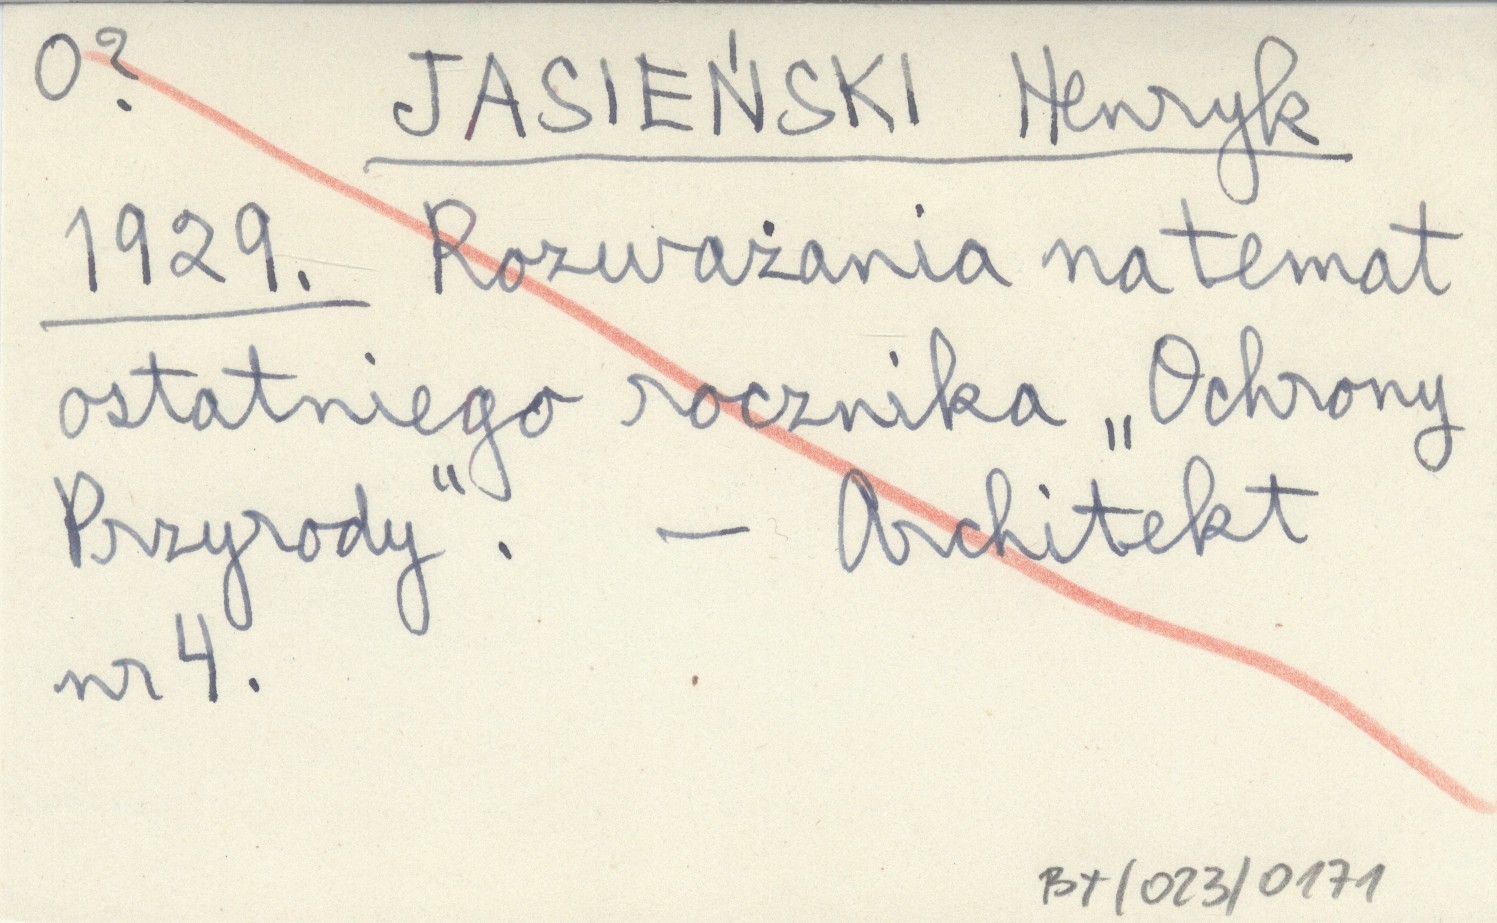 O? JASIEŃSKI Henryk
1929. Rozważania na temat
ostatniego rocznika „Ochrony
Przyrody". — Architekt
nr 4.
BT/023/0171